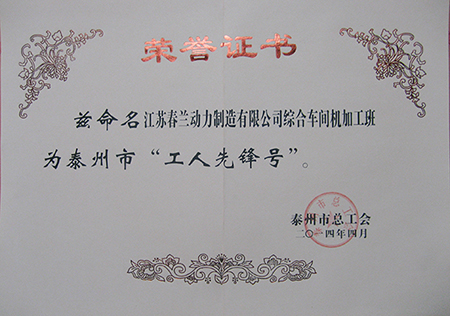 荣誉证书
兹命名江苏春兰动力制造有限公司综合车间机加工班
为泰州市“工人先锋号”。
泰州市总工会
二〇一四年四月